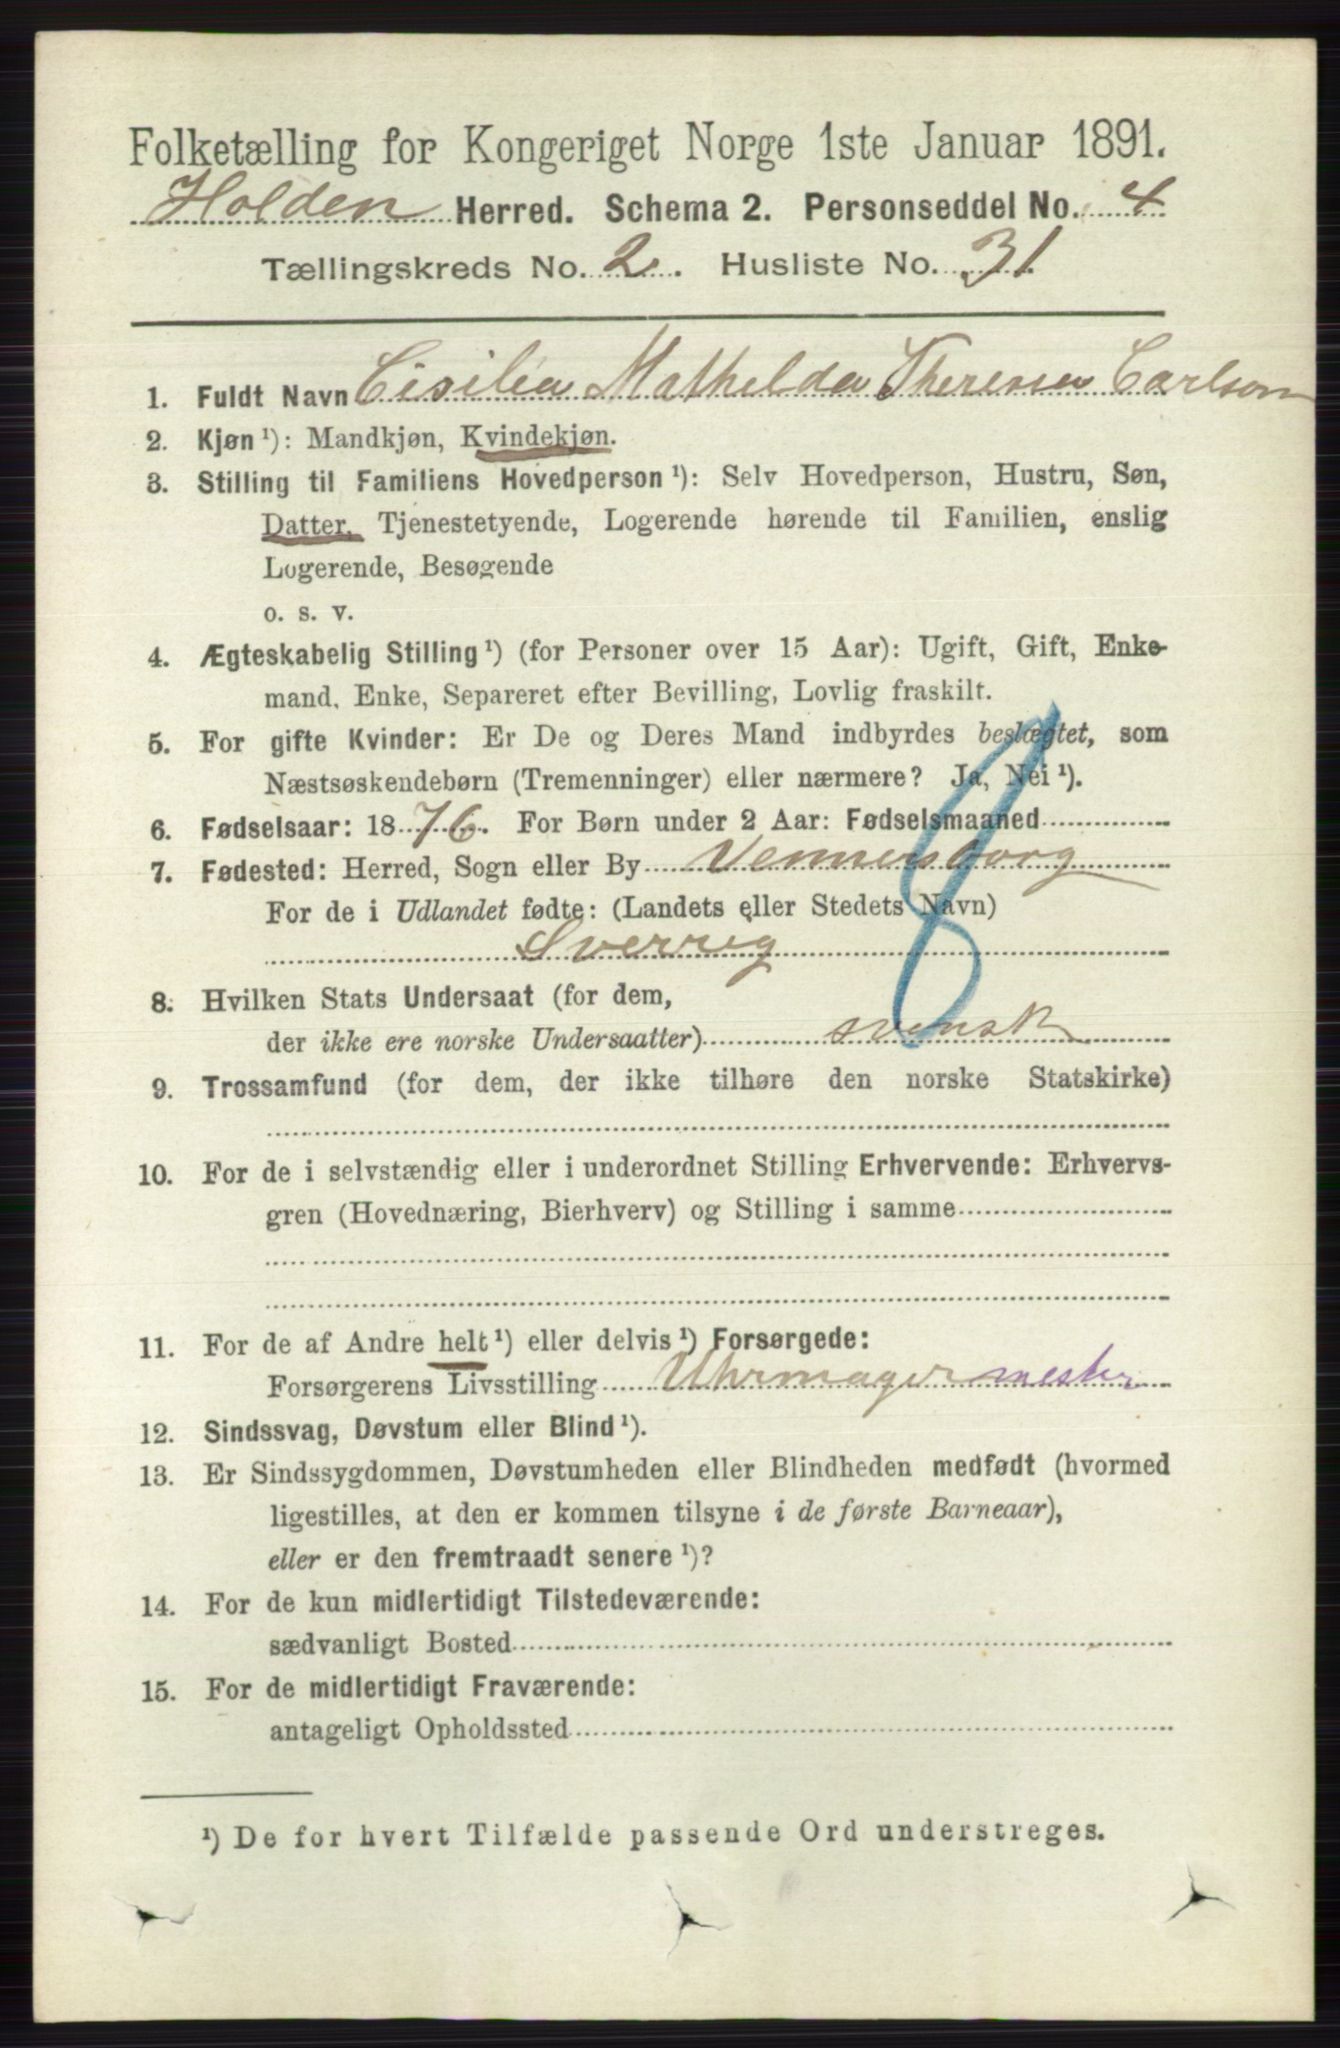 Folketælling for Kongeriget Norge 1ste Januar 1891.
Holden Herred. Schema 2. Personseddel No. 4
Tællingskreds No. 2. Husliste No. 31.
1. Fuldt Navn Cisilia Mathelda Theresia Carlson
2. Kjøn ¹): Mandkjøn, Kvindekjøn.
3. Stilling til Familiens Hovedperson ¹): Selv Hovedperson, Hustru, Søn,
Datter, Tjenestetyende, Logerende hørende til Familien, enslig
Logerende, Besøgende
o. s. v.
4. Ægteskabelig Stilling ¹) (for Personer over 15 Aar): Ugift, Gift, Enke-
mand, Enke, Separeret efter Bevilling, Lovlig fraskilt.
5. For gifte Kvinder: Er De og Deres Mand indbyrdes beslægtet, som
Næstsøskendebørn (Tremenninger) eller nærmere? Ja, Nei ¹).
6. Fødselsaar: 1876. For Børn under 2 Aar: Fødselsmaaned
7. Fødested: Herred, Sogn eller By Vennersborg
For de i Udlandet fødte: (Landets eller Stedets Navn)
Sverrig
8. Hvilken Stats Undersaat (for dem,
der ikke ere norske Undersaatter) svensk
9. Trossamfund (for dem, der ikke tilhøre den norske Statskirke)
10. For de i selvstændig eller i underordnet Stilling Erhvervende: Erhvervs-
gren (Hovednæring, Bierhverv) og Stilling i samme
11. For de af Andre helt ¹) eller delvis ¹) Forsørgede:
Forsørgerens Livsstilling Uhrmagermester
12. Sindssvag, Døvstum eller Blind ¹).
13. Er Sindssygdommen, Døvstumheden eller Blindheden medfødt (hvormed
ligestilles, at den er kommen tilsyne i de første Barneaar),
eller er den fremtraadt senere ¹)?
14. For de kun midlertidigt Tilstedeværende:
sædvanligt Bosted
15. For de midlertidigt Fraværende:
antageligt Opholdssted
¹) De for hvert Tilfælde passende Ord understreges.